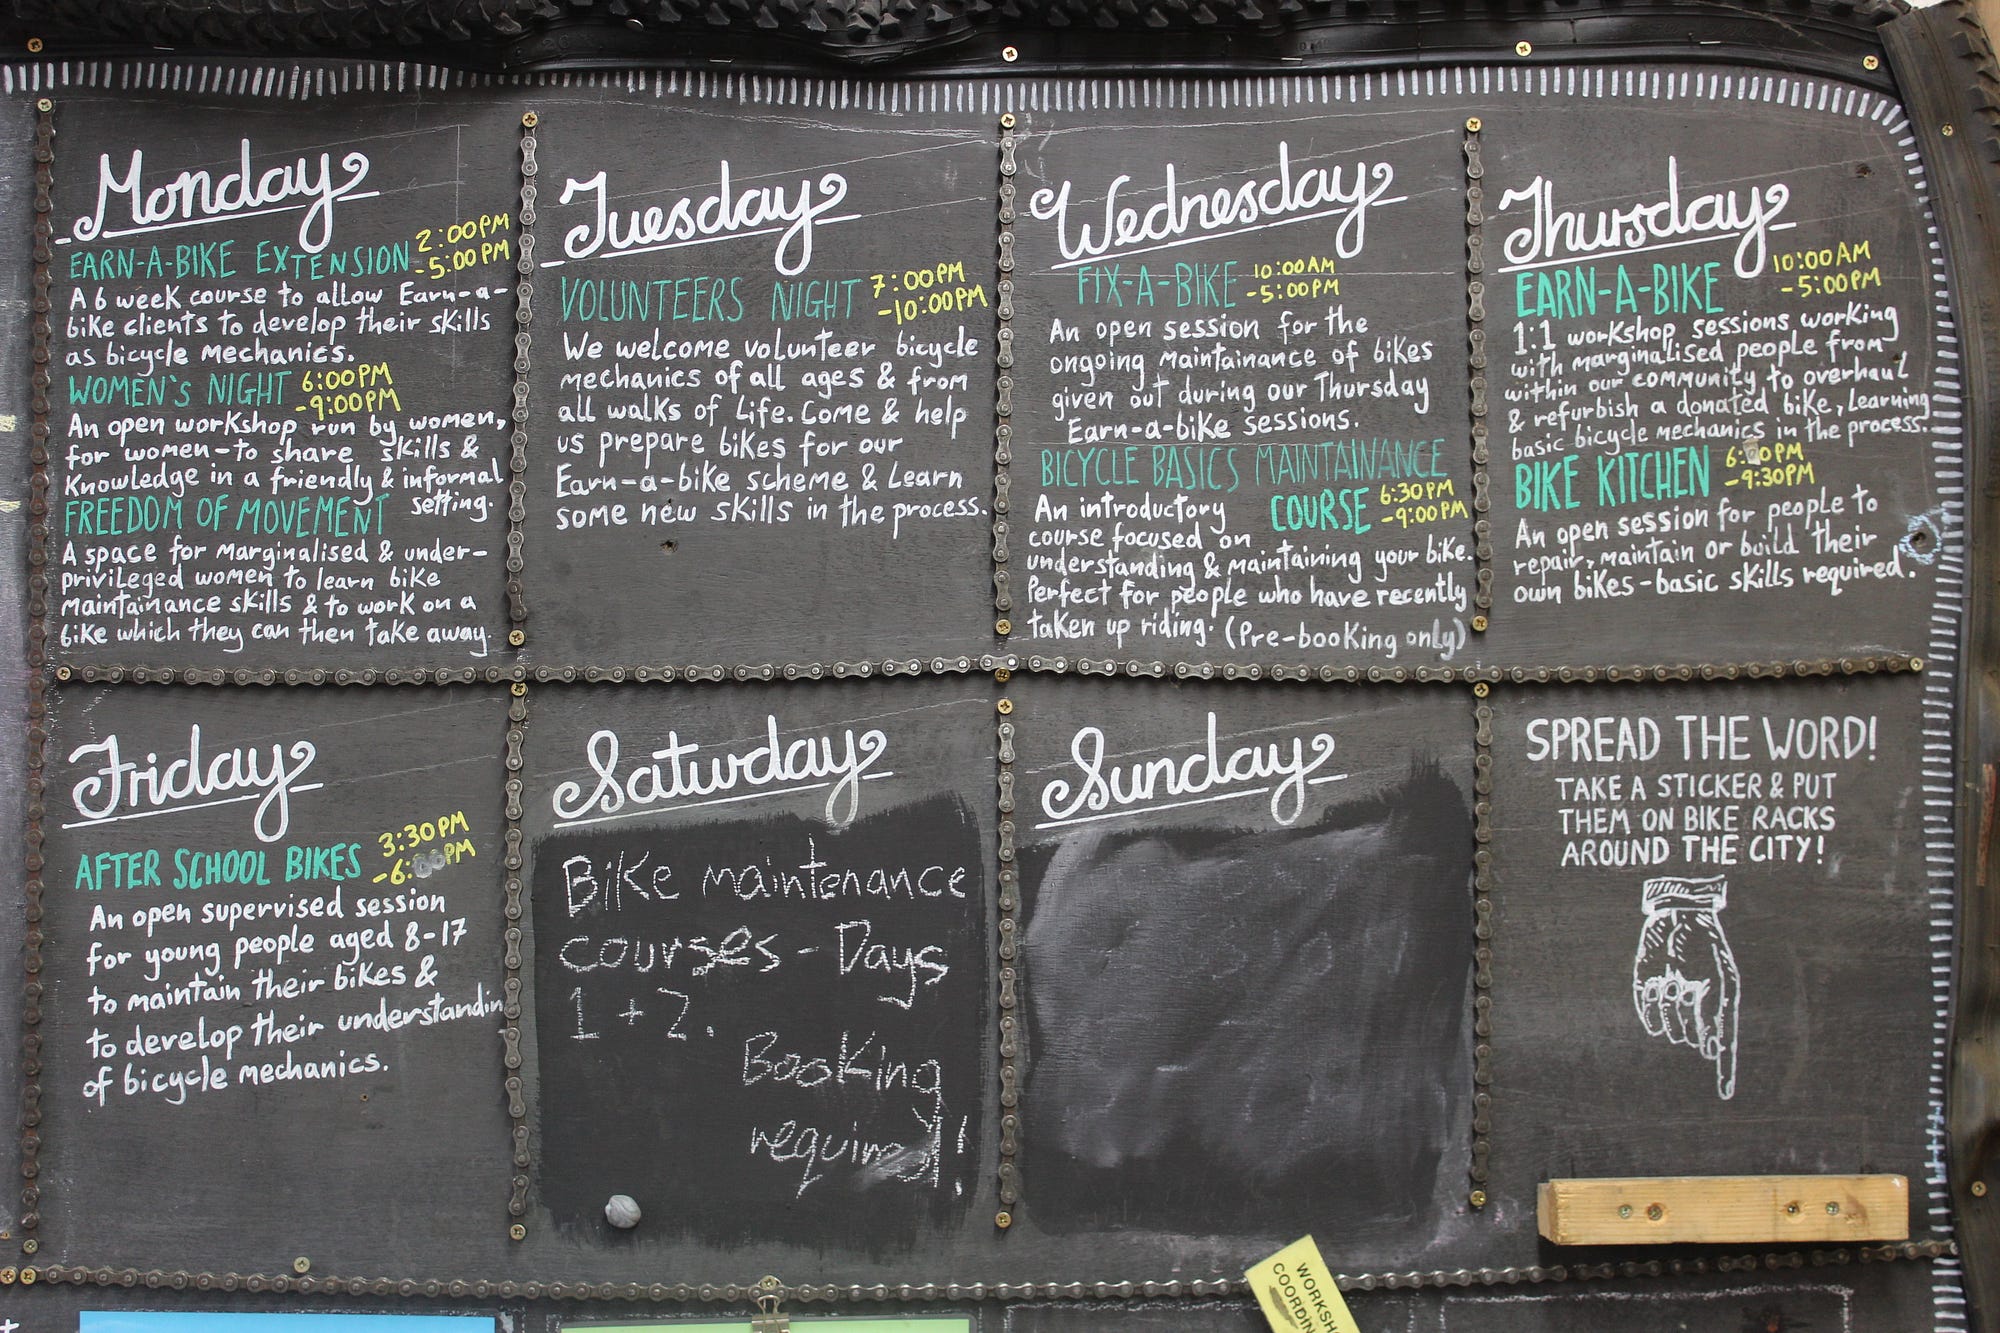 Monday
EARN-A-BIKE EXTENSION 2:00PM
-5:00PM
A 6 week course to allow Earn-a-
bike clients to develop their skills
as bicycle mechanics.
WOMEN'S NIGHT 6:00PM
-9:00PM
An open workshop run by women,
for women-to share skills &
knowledge in a friendly & informal
setting.
FREEDOM OF MOVEMENT
A space for marginalised & under-
privileged women to learn bike
maintainance skills & to work on a
bike which they can then take away.
Tuesday
VOLUNTEERS NIGHT 7:00PM
-10:00PM
We welcome volunteer bicycle
mechanics of all ages & from
all walks of life. Come & help
us prepare bikes for our
Earn-a-bike scheme & learn
some new skills in the process.
Wednesday
FIX-A-BIKE 10:00AM
-5:00PM
An open session for the
ongoing maintainance of bikes
given out during our Thursday
Earn-a-bike sessions.
BICYCLE BASICS MAINTAINANCE
COURSE 6:30PM
-9:00PM
An introductory
course focused on
understanding & maintaining your bike.
Perfect for people who have recently
taken up riding. (Pre-booking only)
Thursday
EARN-A-BIKE 10:00AM
-5:00PM
1:1 workshop sessions working
with marginalised people from
within our community to overhaul
& refurbish a donated bike, learning
basic bicycle mechanics in the process.
BIKE KITCHEN
-9:30PM
An open session for people to
repair, maintain or build their
own bikes-basic skills required.
Friday
AFTER SCHOOL BIKES 3:30PM
An open supervised session
for young people aged 8-17
to maintain their bikes &
to develop their understandin
of bicycle mechanics.
Saturday
Bike maintenance
courses - Days
1 + 2.
Booking
required!
Sunday
SPREAD THE WORD!
TAKE A STICKER & PUT
THEM ON BIKE RACKS
AROUND THE CITY!
WORKSH
COORDIN